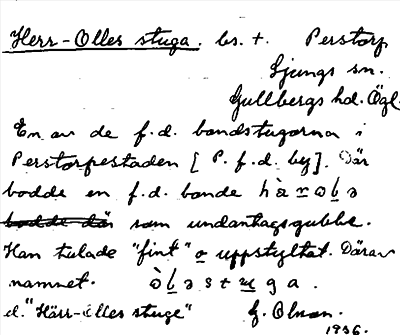 Herr-Olles stuga. bs. +. Perstorp
Ljungs sn.
Gullbergs hd. Ögl.
En av de f.d. bondstugorna i
Perstorpestaden [P. f.d. by]. Där
bodde en f.d. bonde hàrolə
bodde där som undantagsgubbe.
Han talade "fint" o uppstyltat. Därav
namnet. òləstuga.
d. "Härr-Olles stuge" G. Olson.
1936.